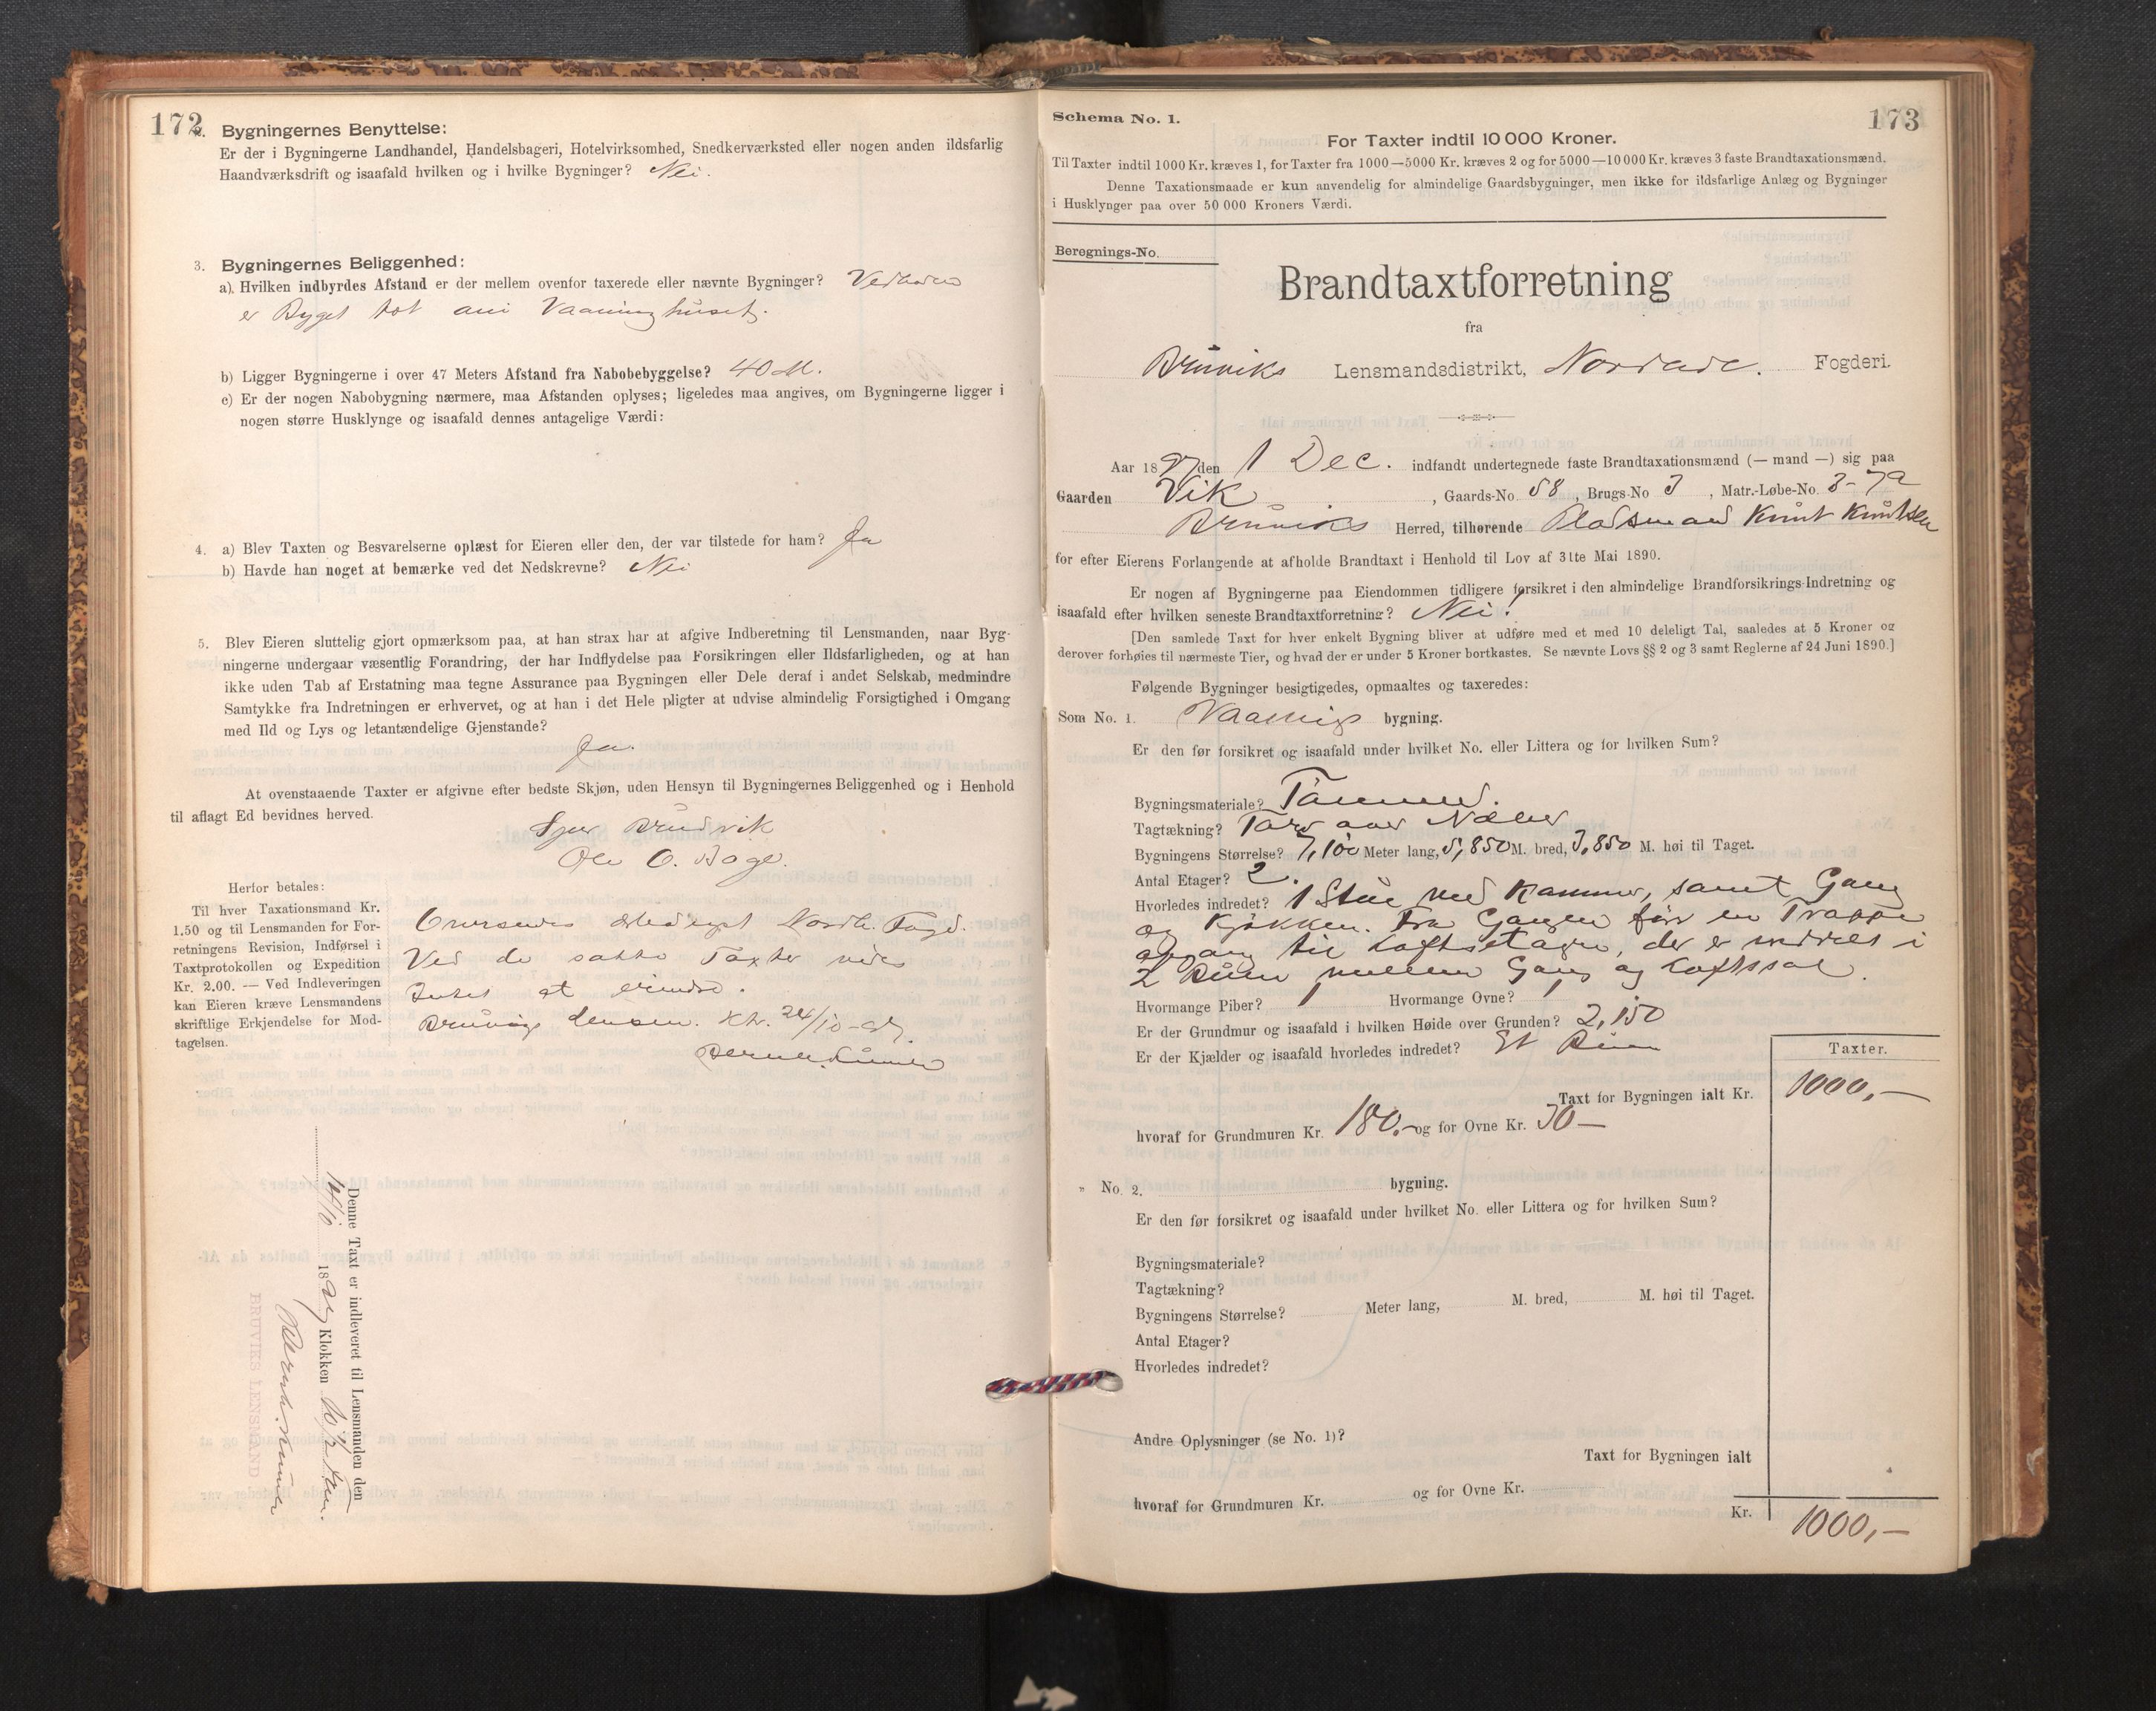 172
2. Bygningernes Benyttelse:
Er der i Bygningerne Landhandel, Handelsbageri, Hotelvirksomhed, Snedkerværksted eller nogen anden ildsfarlig
Haandværksdrift og isaafald hvilken og i hvilke Bygninger? Nei.
3. Bygningernes Beliggenhed:
a). Hvilken indbyrdes Afstand er der mellem ovenfor taxerede eller nævnte Bygninger?
er Byget tot
b) Ligger Bygningerne i over 47 Meters Afstand fra Nabobebyggelse? 40 M.
c) Er der nogen Nabobygning nærmere, maa Afstanden oplyses; ligeledes maa angives, om Bygningerne ligger i
nogen større Husklynge og isaafald dennes antagelige Værdi:
4. a) Blev Taxten og Besvarelserne oplæst for Eieren eller den, der var tilstede for ham? Ja
b) Havde han noget at bemærke ved det Nedskrevne? Nei
5. Blev Eieren sluttelig gjort opmærksom paa, at han strax har at afgive Indberetning til Lensmanden, naar Byg-
ningerne undergaar væsentlig Forandring, der har Indflydelse paa Forsikringen eller Ildsfarligheden, og at han
ikke uden Tab af Erstatning maa tegne Assurance paa Bygningen eller Dele deraf i andet Selskab, medmindre
Samtykke fra Indretningen er erhvervet, og at han i det Hele pligter at udvise almindelig Forsigtighed i Omgang
med Ild og Lys og letantændelige Gjenstande?
Ja.
At ovenstaaende Taxter er afgivne efter bedste Skjøn, uden Hensyn til Bygningernes Beliggenhed og i Henhold
til aflagt Ed bevidnes herved.
Ole O.
Herfor betales:
Til hver Taxationsmand Kr.
1.50 og til Lensmanden for For-
retningens Revision, Indførsel i
Taxtprotokollen og Expedition
Kr. 2.00. — Ved Indleveringen
kan Eieren kræve Lensmandens
skriftlige Erkjendelse for Mod-
tagelsen.
Nordh. Fogd.
Ved de satte Taxter vides
Intet at erindre.
Denne Taxt er indleveret til Lensmanden den
1897 Klokken
BRUVIKS LENSMAND
173
Schema No. 1.
For Taxter indtil 10 000 Kroner.
Til Taxter indtil 1000 Kr. kræves 1, for Taxter fra 1000—5000 Kr. kræves 2 og for 5000—10000 Kr. kræves 3 faste Brandtaxationsmænd.
Denne Taxationsmaade er kun anvendelig for almindelige Gaardsbygninger, men ikke for ildsfarlige Anlæg og Bygninger
i Husklynger paa over 50 000 Kroners Værdi.
Beregnings-No.
Brandtaxtforretning
fra
Bruviks Lensmandsdistrikt, Fogderi.
Aar 1897 den 1 Dec. indfandt undertegnede faste Brandtaxationsmænd (— mand —) sig paa
Gaarden Vik, Gaards-No. 58, Brugs-No 3, Matr.-Løbe-No.
Bruviks Herred, tilhørende Pladsmand Knut Knutsen
for efter Eierens Forlangende at afholde Brandtaxt i Henhold til Lov af 31te Mai 1890.
Er nogen af Bygningerne paa Eiendommen tidligere forsikret i den almindelige Brandforsikrings-Indretning og
isaafald efter hvilken seneste Brandtaxtforretning? Nei!
[Den samlede Taxt for hver enkelt Bygning bliver at udføre med et med 10 deleligt Tal, saaledes at 5 Kroner og
derover forhøies til nærmeste Tier, og hvad der er under 5 Kroner bortkastes. Se nævnte Lovs §§ 2 og 3 samt Reglerne af 24 Juni 1890.]
Følgende Bygninger besigtigedes, opmaaltes og taxeredes:
Som No. 1. Vaanings bygning.
Er den før forsikret og isaafald under hvilket No. eller Littera og for hvilken Sum?
Bygningsmateriale? Tømmer.
Tagtækning? Torv over Næver
Bygningens Størrelse? 7,100 Meter lang, 5,850 M. bred, 3,850 M. høi til Taget.
Antal Etager? 2.
Hvorledes indredet? 1 Stue med Kammer, samt Gang
og Kjøkken. Fra Gangen før en Trappe
opgang til Loftsetagen, der er inddelt i
2 Rum mellem Gang og Loftssal.
Hvormange Piber? 1 Hvormange Ovne? 1
Er der Grundmur og isaafald i hvilken Høide over Grunden? 2,150
Er der Kjælder og isaafald hvorledes indredet? Et Rum
Taxter.
Taxt for Bygningen ialt Kr. 1000,—
hvoraf for Grundmuren Kr. 180.— og for Ovne Kr. 30—
„ No. 2. bygning.
Er den før forsikret og isaafald under hvilket No. eller Littera og for hvilken Sum?
Bygningsmateriale?
Tagtækning?
Bygningens Størrelse? Meter lang, M. bred, M. høi til Taget.
Antal Etager?
Hvorledes indredet?
Andre Oplysninger (se No. 1)?
Taxt for Bygningen ialt
hvoraf for Grundmuren Kr. og for Ovne Kr.
Kr. 1000,—